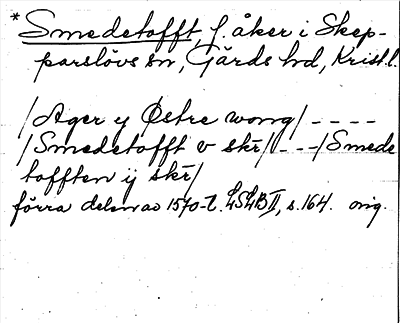 * Smedetofft, f. åker i Skep-
parslövs sn, Gärds hd, Krist.l.
/Ager y Østre wong/ - - - -
/Smedetofft v skr/ - - - /Smede
tofften ij skr/
förra delen av 1570-t. LSLB II, s. 164. orig.